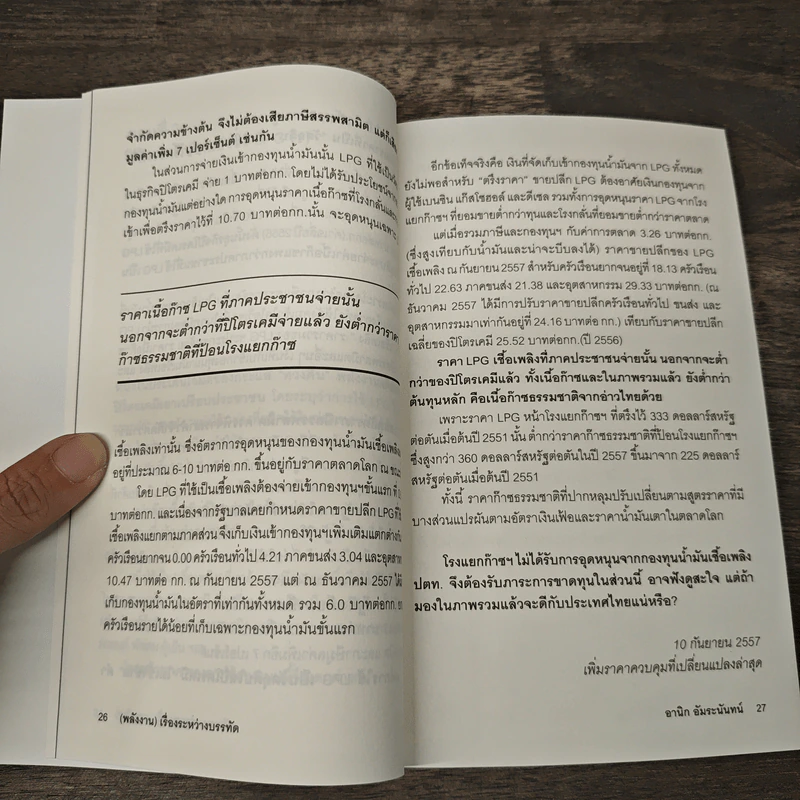 จำกัดความข้างต้น จึงไม่ต้องเสียภาษีสรรพสามิต แต่ก็
มูลค่าเพิ่ม 7 เปอร์เซ็นต์ เช่นกัน
ในส่วนการจ่ายเงินเข้ากองทุนน้ำมันนั้น LPG ที่ใช้เป็น
ในธุรกิจปิโตรเคมี จ่าย 1 บาทต่อกก. โดยไม่ได้รับประโยชน์จาก
กองทุนน้ำมันแต่อย่างใด การอุดหนุนราคาเนื้อก๊าซที่โรงกลั่นและ
เข้าเพื่อตรึงราคาไว้ที่ 10.70 บาทต่อกก.นั้น จะอุดหนุนเฉพาะ
ราคาเนื้อก๊าซ LPG ที่ภาคประชาชนจ่ายนั้น
นอกจากจะต่ำกว่าที่ปิโตรเคมีจ่ายแล้ว ยังต่ำกว่าราคา
ก๊าซธรรมชาติที่ป้อนโรงแยกก๊าซ
เชื้อเพลิงเท่านั้น ซึ่งอัตราการอุดหนุนของกองทุนน้ำมันเชื้อเพลิง
อยู่ที่ประมาณ 6-10 บาทต่อ กก. ขึ้นอยู่กับราคาตลาดโลก ณ
โดย LPG ที่ใช้เป็นเชื้อเพลิงต้องจ่ายเข้ากองทุนฯขั้นแรก ที่
บาทต่อกก. และเนื่องจากรัฐบาลเคยกำหนดราคาขายปลีก LPG
เชื้อเพลิงแยกตามภาคส่วน จึงเก็บเงินเข้ากองทุนฯเพิ่มเติมแตกต่าง
ครัวเรือนยากจน 0.00 ครัวเรือนทั่วไป 4.21 ภาคขนส่ง 3.04 และ
10.47 บาทต่อ กก. ณ กันยายน 2557 แต่ ณ ธันวาคม 2557 ได้
เก็บกองทุนน้ำมันในอัตราที่เท่ากันทั้งหมด รวม 6.0 บาทต่อกก.
ครัวเรือนรายได้น้อยที่เก็บเฉพาะกองทุนน้ำมันขั้นแรก
26 (พลังงาน) เรื่องระหว่างบรรทัด
อีกข้อเท็จจริงคือ เงินที่จัดเก็บเข้ากองทุนน้ำมันจาก LPG ทั้งหมด
ยังไม่พอสำหรับ “ตรึงราคา” ขายปลีก LPG ต้องอาศัยเงินกองทุนจาก
ผู้ใช้เบนซิน แก๊สโซฮอล์ และดีเซล รวมทั้งการอุดหนุนราคา LPG จากโรง
แยกก๊าซฯ ที่ยอมขายต่ำกว่าทุนและโรงกลั่นที่ยอมขายต่ำกว่าราคาตลาด
แต่เมื่อรวมภาษีและกองทุนฯ กับค่าการตลาด 3.26 บาทต่อกก.
(ซึ่งสูงเทียบกับน้ำมันและน่าจะบีบลงได้) ราคาขายปลีกของ LPG
เชื้อเพลิง ณ กันยายน 2557 สำหรับครัวเรือนยากจนอยู่ที่ 18.13 ครัวเรือน
ทั่วไป 22.63 ภาคขนส่ง 21.38 และอุตสาหกรรม 29.33 บาทต่อกก. (ณ
ธันวาคม 2557 ได้มีการปรับราคาขายปลีกครัวเรือนทั่วไป ขนส่ง และ
อุตสาหกรรมมาเท่ากันอยู่ที่ 24.16 บาทต่อ กก.) เทียบกับราคาขายปลีก
เฉลี่ยของปิโตรเคมี 25.52 บาทต่อกก.(ปี 2556)
ราคา LPG เชื้อเพลิงที่ภาคประชาชนจ่ายนั้น นอกจากจะต่ำ
กว่าของปิโตรเคมีแล้ว ทั้งเนื้อก๊าซและในภาพรวมแล้ว ยังต่ำกว่า
ต้นทุนหลัก คือเนื้อก๊าซธรรมชาติจากอ่าวไทยด้วย
เพราะราคา LPG หน้าโรงแยกก๊าซฯ ที่ตรึงไว้ 333 ดอลลาร์สหรัฐ
ต่อตันเมื่อต้นปี 2551 นั้น ต่ำกว่าราคาก๊าซธรรมชาติที่ป้อนโรงแยกก๊าซฯ
ซึ่งสูงกว่า 360 ดอลลาร์สหรัฐต่อตันในปี 2557 ขึ้นมาจาก 225 ดอลลาร์
สหรัฐต่อตันเมื่อต้นปี 2551
ทั้งนี้ ราคาก๊าซธรรมชาติที่ปากหลุมปรับเปลี่ยนตามสูตรราคาที่มี
บางส่วนแปรผันตามอัตราเงินเฟ้อและราคาน้ำมันเตาในตลาดโลก
โรงแยกก๊าซฯ ไม่ได้รับการอุดหนุนจากกองทุนน้ำมันเชื้อเพลิง
ปตท. จึงต้องรับภาระการขาดทุนในส่วนนี้ อาจฟังดูสะใจ แต่ถ้า
มองในภาพรวมแล้วจะดีกับประเทศไทยแน่หรือ?
10 กันยายน 2557
เพิ่มราคาควบคุมที่เปลี่ยนแปลงล่าสุด
อานิก อัมระนันทน์ 27